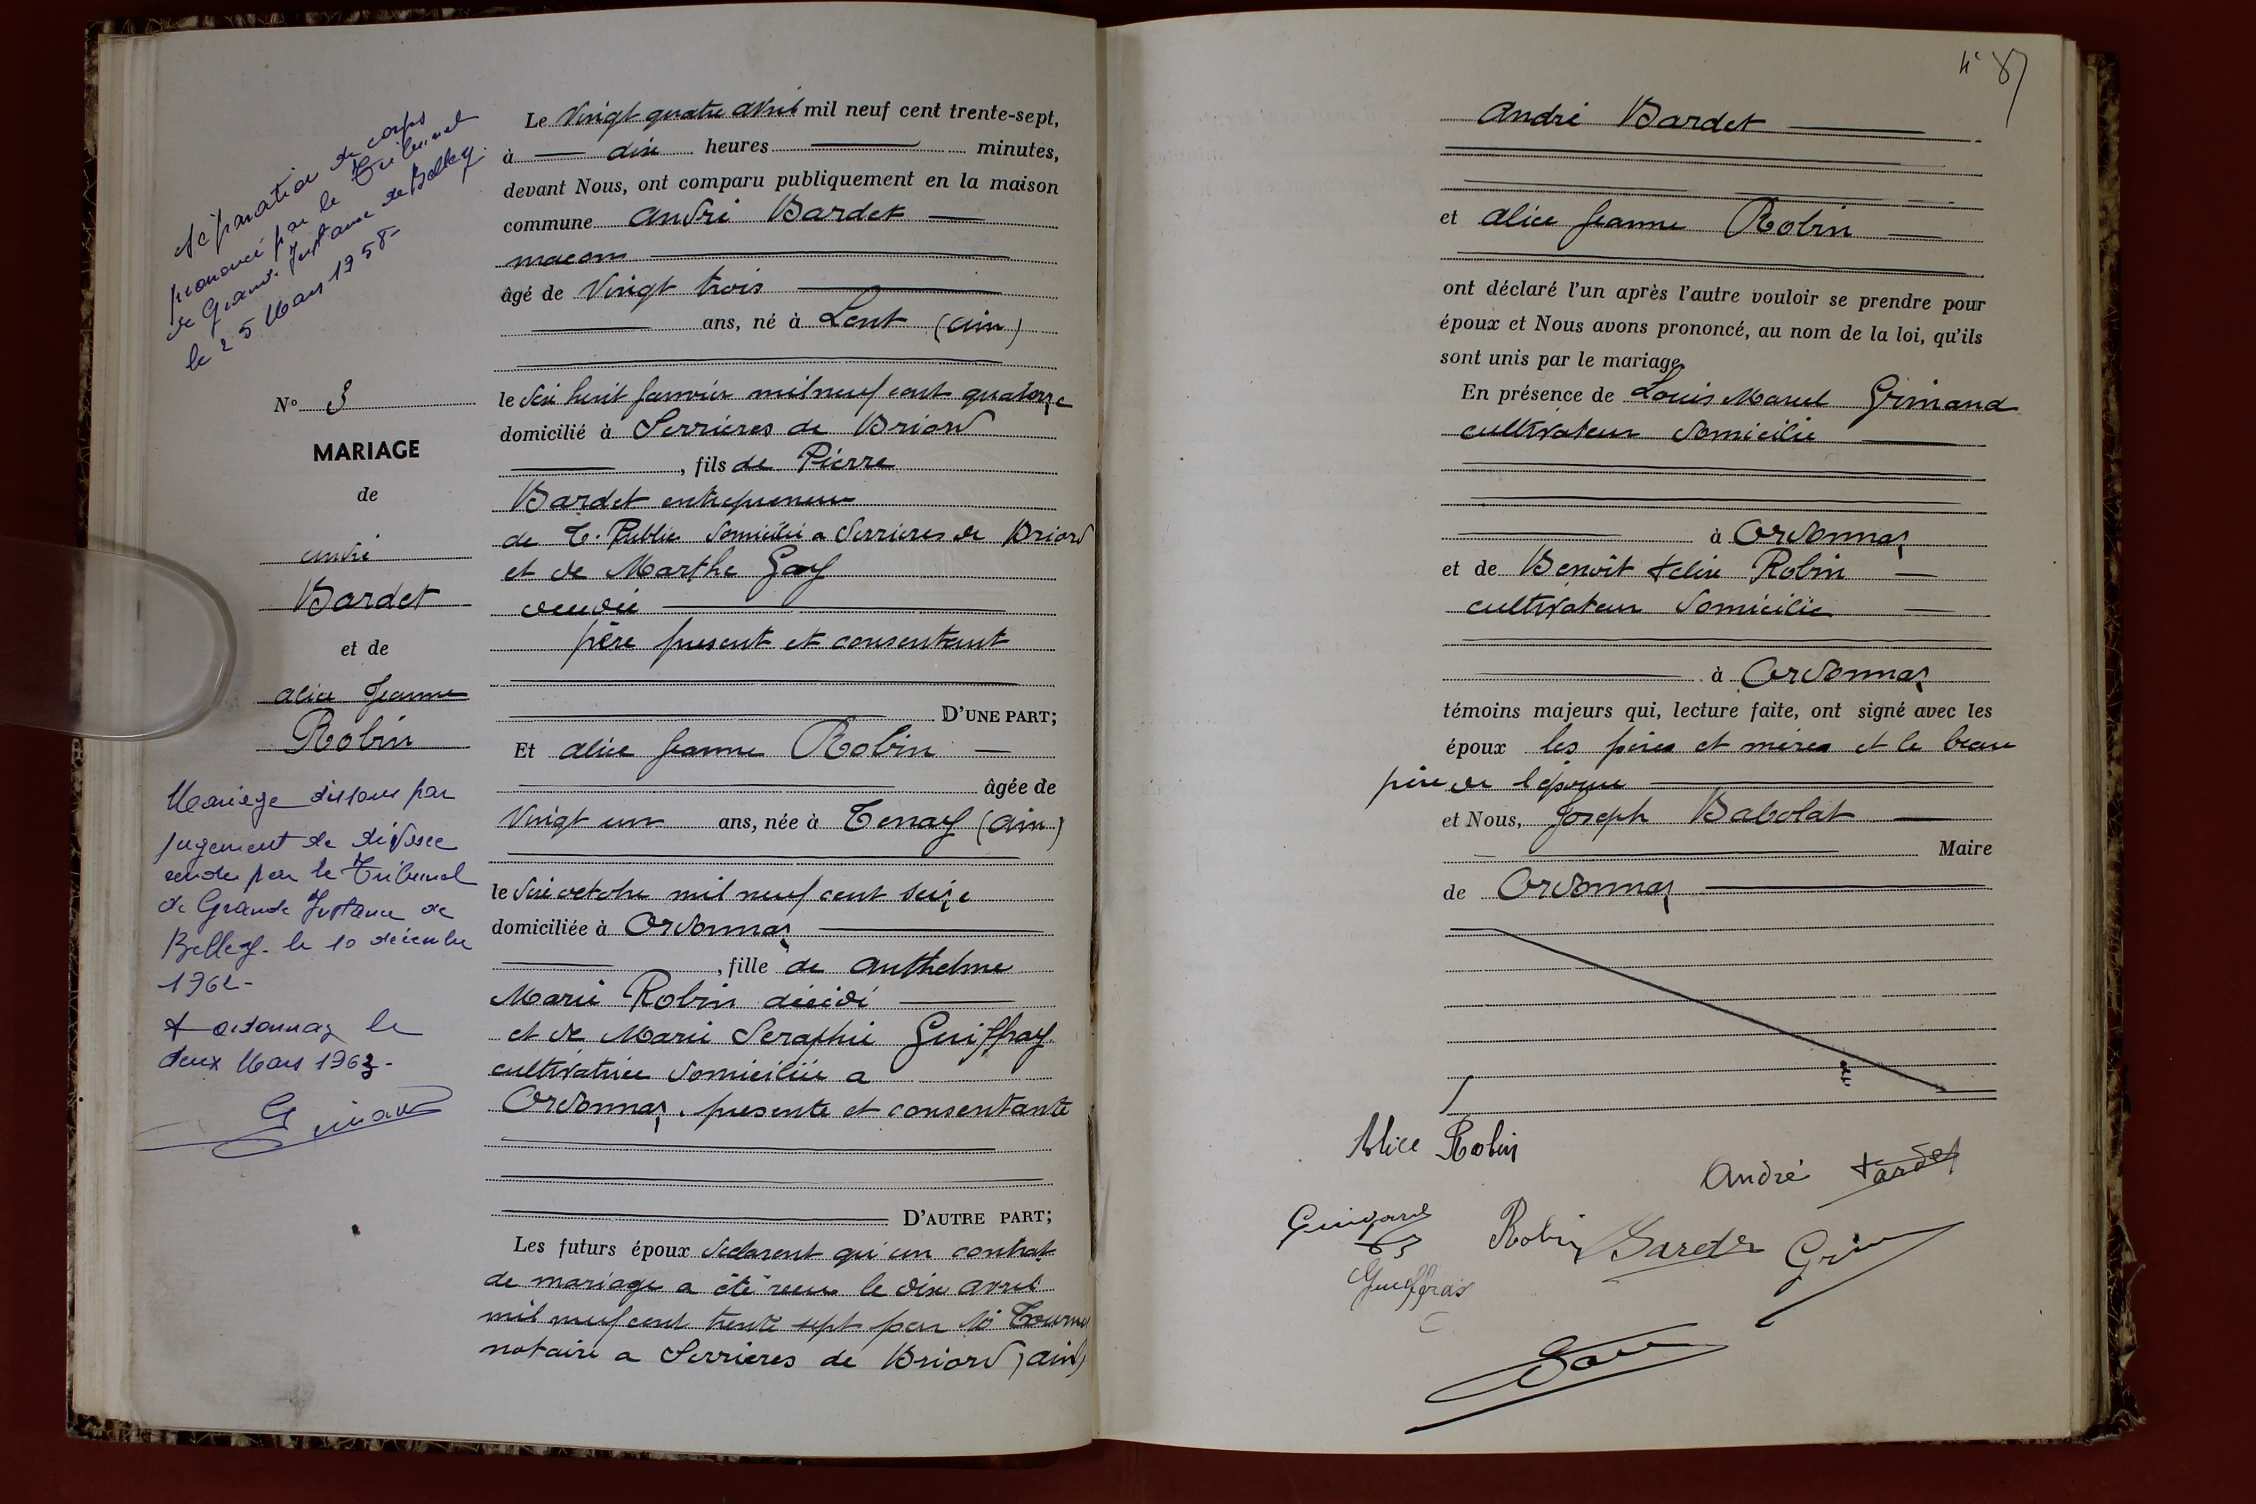 Séparation de corps
prononcé par le Tribunal
de Grande Instance de Belley
le 25 Mars 1958-
N° 3
MARIAGE
de
andré
Bardet
et de
alice Jeanne
Robin
Mariage dissous par
jugement de divorce
rendu par le Tribunal
de Grande Instance de
Belley. le 10 décembre
1962-
ordonnaz le
deux Mars 1963-
Le Vingt quatre avril mil neuf cent trente-sept,
à dix heures minutes,
devant Nous, ont comparu publiquement en la maison
commune andré Bardet
macon
âgé de Vingt trois
ans, né à Lent (ain)
le dix huit Janvier mil neuf cent quatorze
domicilié à Serrières de Briord
, fils de Pierre
Bardet entrepreneur
de T. Public domicilié a Serrieres de Briord
et de Marthe Gay
père present et consentant
D'UNE PART;
Et alice Jeanne Robin
âgée de
Vingt un ans, née à Tenay (ain)
le dix octobre mil neuf cent seize
domiciliée à Ordonnaz
, fille de anthelme
Marie Robin décédé
et de Marie Seraphie Guiffray
cultivatrice domiciliée a
Ordonnaz. presente et consentante
D'AUTRE PART;
Les futurs époux declarent qu'un contrat
de mariage a été recu le dix avril
mil neuf cent trente sept par
notaire a Serrieres de Briord (ain)
andré Bardet
et alice Jeanne Robin
ont déclaré l'un après l'autre vouloir se prendre pour
époux et Nous avons prononcé, au nom de la loi, qu'ils
sont unis par le mariage.
En présence de Louis Marcel Grimand
cultivateur domicilié
à Ordonnaz
et de Benoit Felix Robin
cultivateur domicilié
à Ordonnaz
témoins majeurs qui, lecture faite, ont signé avec les
époux les pères et mères et le beau
père de l'épouse
et Nous, Joseph Babolat
Maire
de Ordonnaz
Alice Robin
André Bardet
Robin Bardet